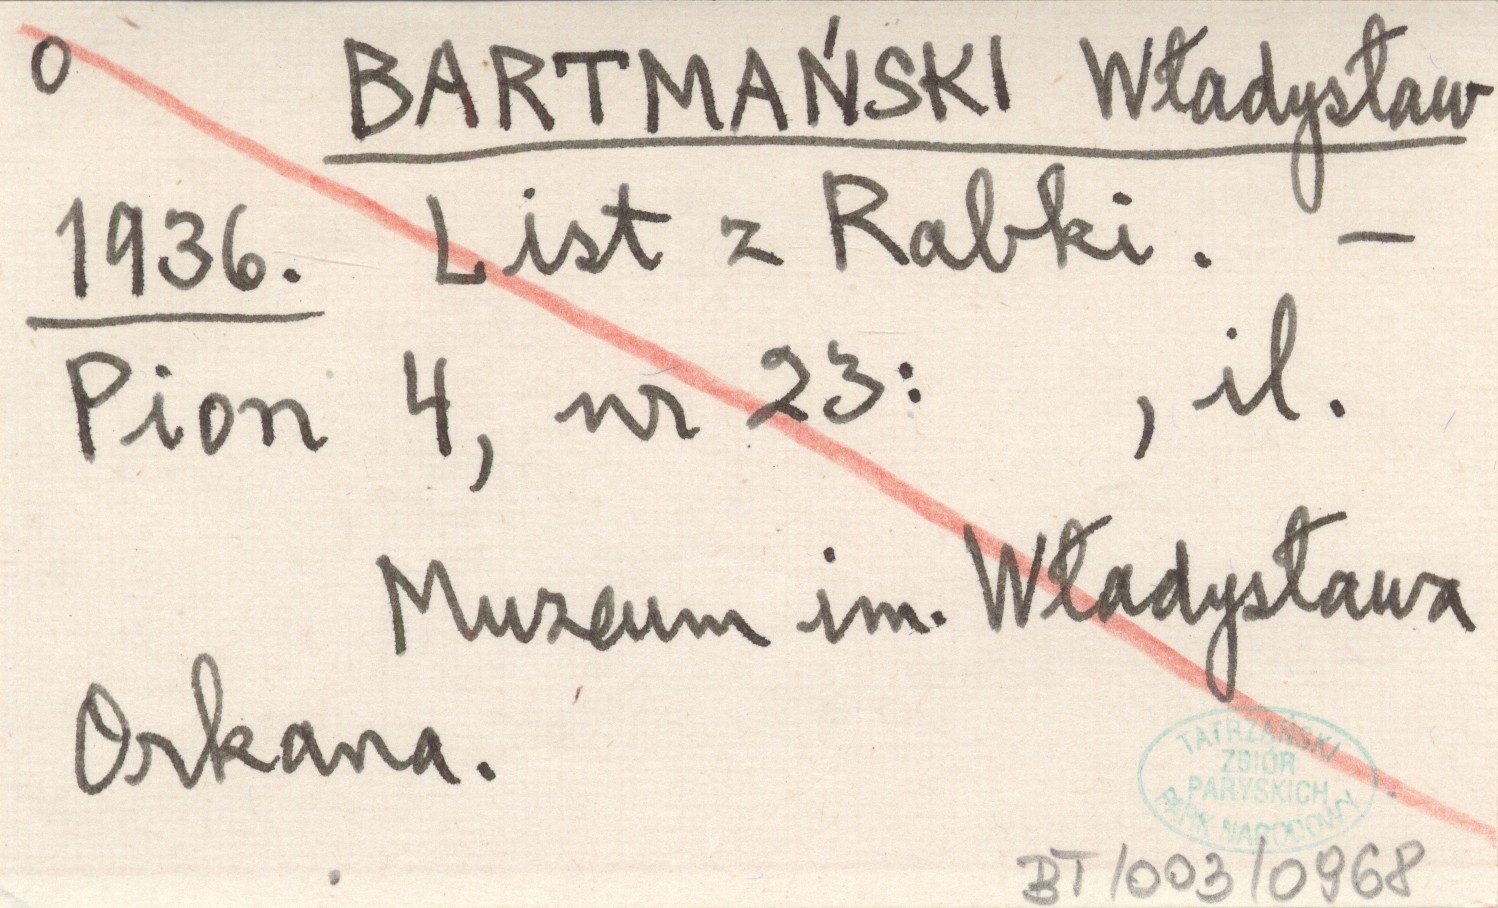 O BARTMAŃSKI Władysław
1936. List z Rabki. –
Pion 4, nr 23: , il.
Muzeum im. Władysława
Orkana.
TATRZAŃSKI
ZBIÓR
PARYSKICH
PARK NARODOWY
BT/003/0968